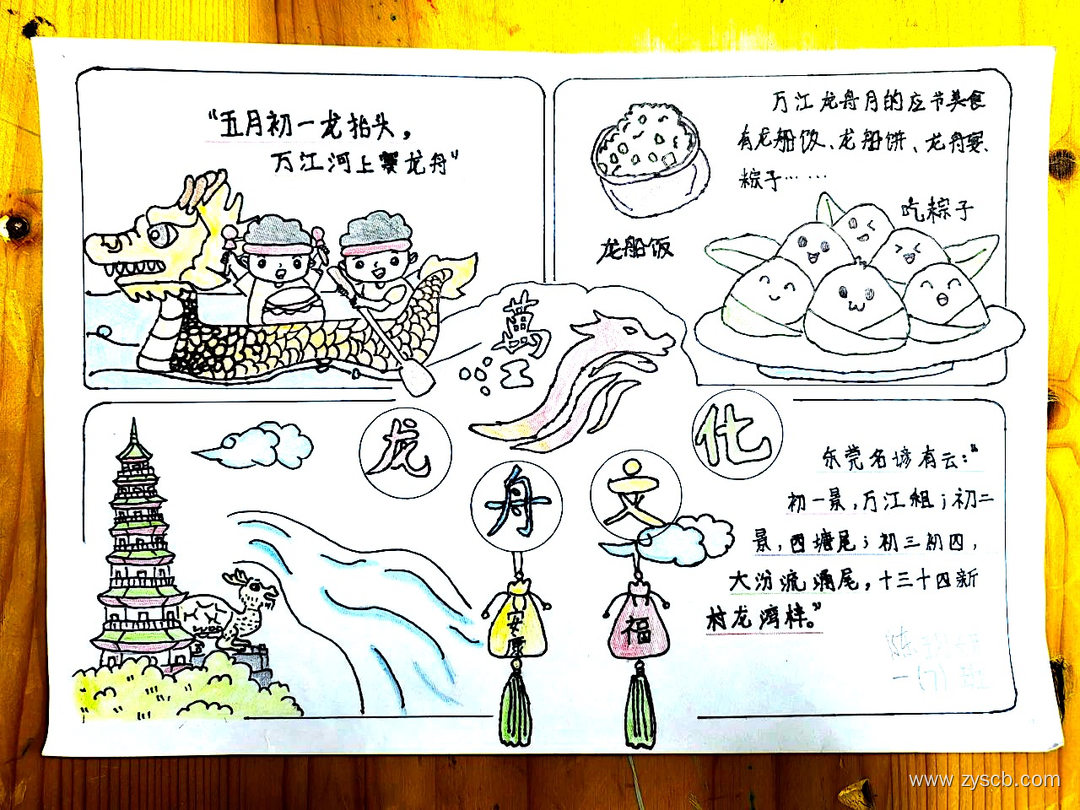 “五月初一龙抬头，
万江河上赛龙舟”
万江龙舟月的应节美食
有龙船饭、龙船饼、龙舟宴、
粽子……
龙船饭
吃粽子
萬
江
龙
舟
文
化
安康
福
东莞名谚有云：“
初一景，万江租；初二
景，西塘尾；初三初四，
大汾流涌尾，十三十四新
村龙湾梓。”
一(7)班
www.zyscb.com